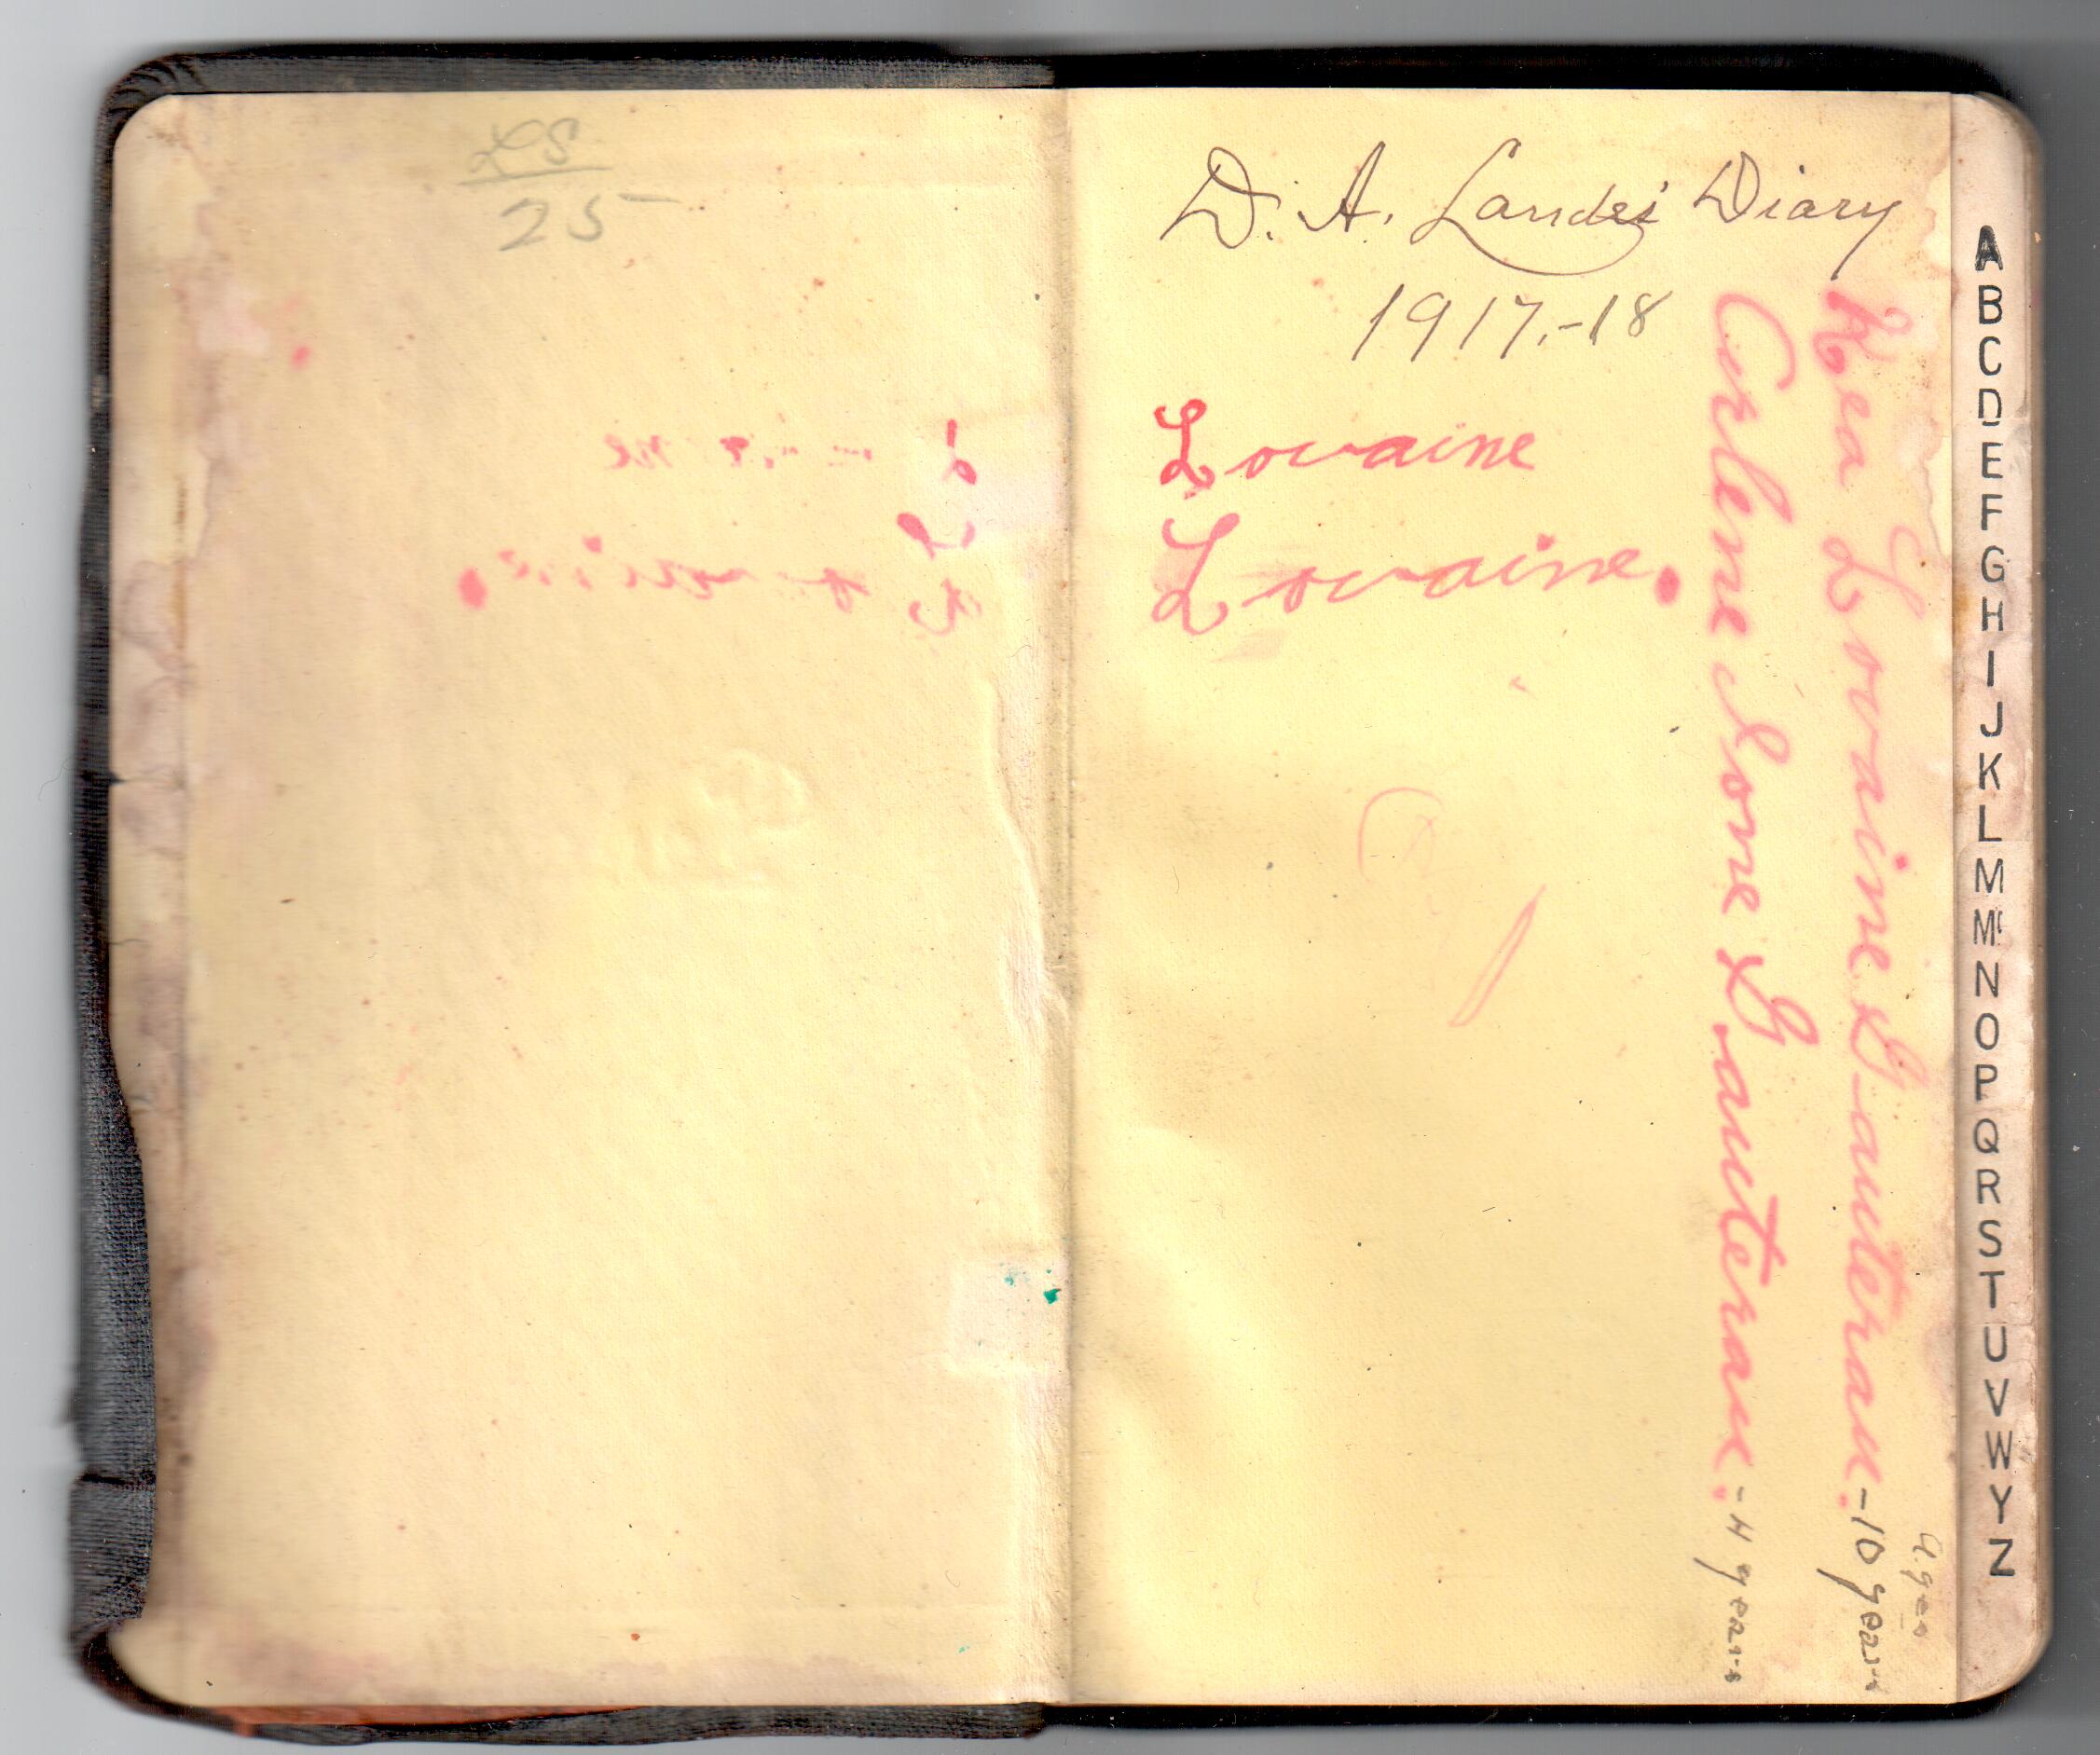 XS
25-
D. A. Landes' Diary
1917,-18
Lovaine
Lovaine.
Rea Lovaine Gauterau. -10 years
Arlene Ione Gauterau. - 4 years
ages
A
B
C
D
E
F
G
H
I
J
K
L
M
Mc
N
O
P
Q
R
S
T
U
V
W
Y
Z